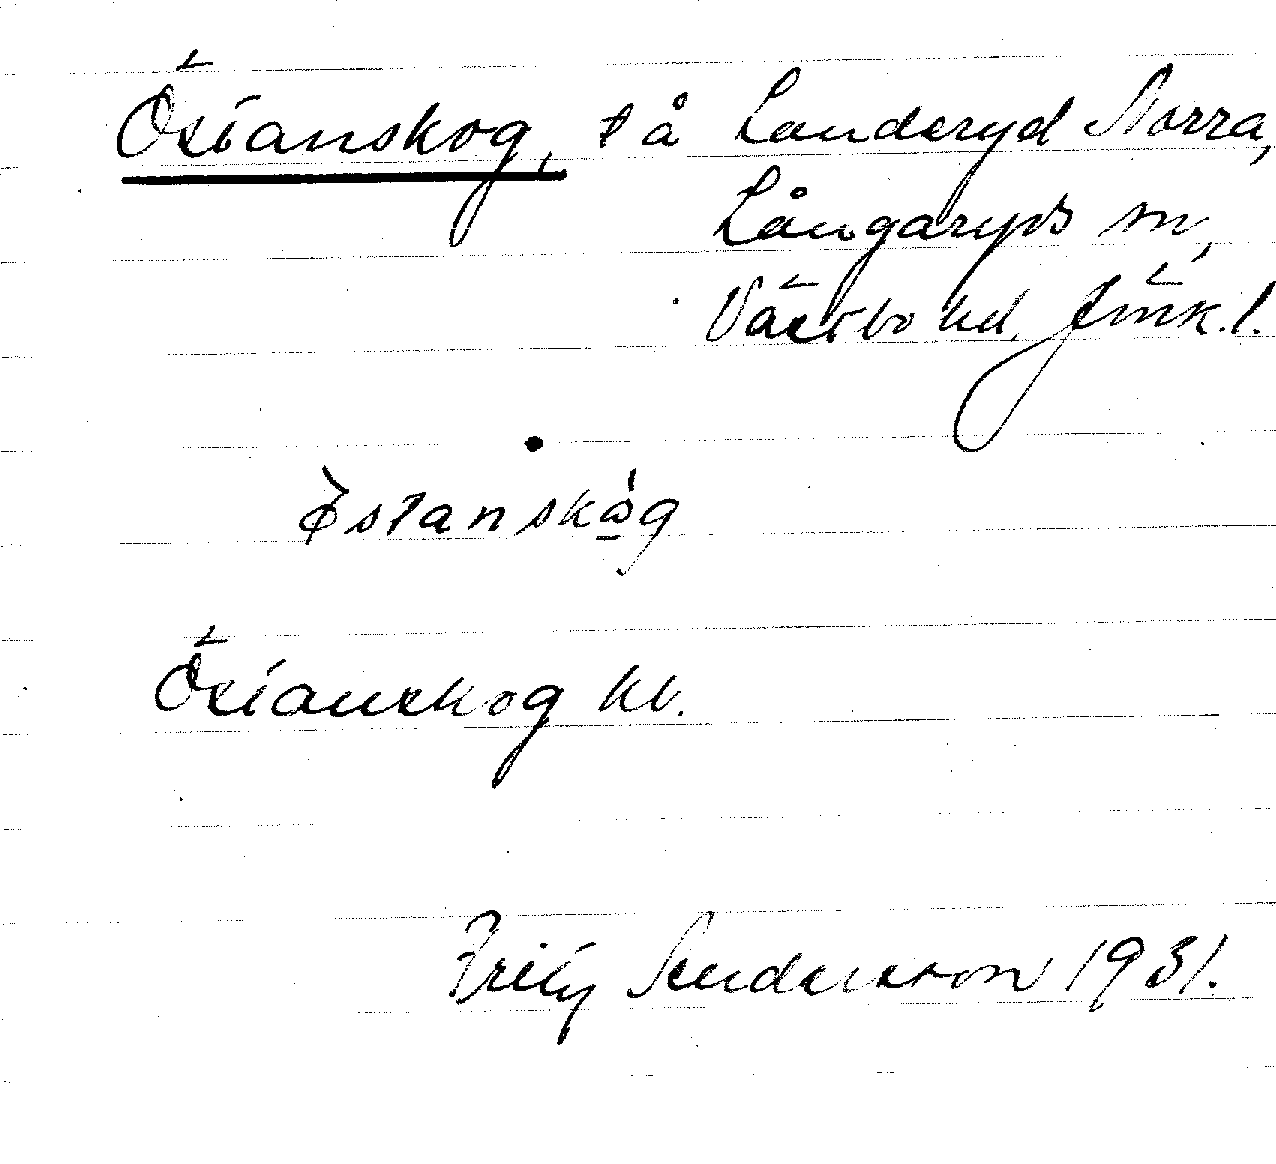 Östanskog, t å Landeryd Norra,
Långaryds sn,
Västbo hd. Jönk.l.
Østanskòg
Östanskog kb.
Fritz Andersson 1931.